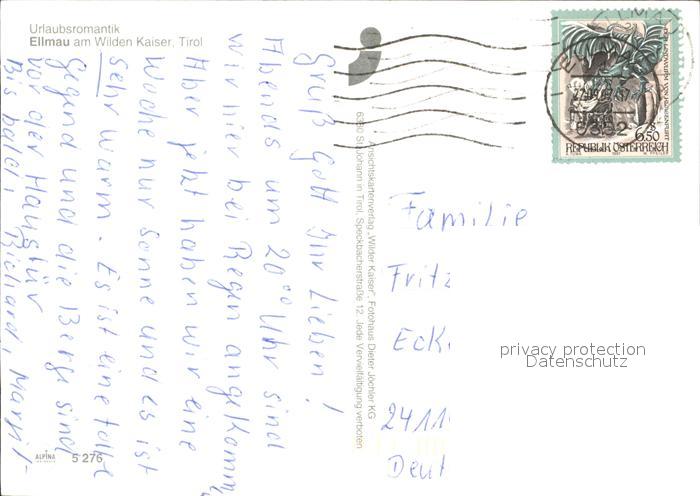 Urlaubsromantik
Ellmau am Wilden Kaiser, Tirol
Gruß Gott Ihr Lieben!
Abends um 20⁰⁰ Uhr sind
wir hier bei Regen angekomm,
Aber jetzt haben wir eine
Woche nur Sonne und es ist
sehr warm. Es ist eine tolle
Gegend und die Berge sind
vor der Haustür
Bis bald, Richard, Margit
ALPINA
5 276
Ansichtskartenverlag „Wilder Kaiser", Fotohaus Dieter Jöchler KG
6380 St. Johann in Tirol, Speckbacherstraße 12. Jede Vervielfältigung verboten
6352
6.50
REPUBLIK ÖSTERREICH
1997
Familie
Fritz
Eck
2411
Deut
privacy protection
Datenschutz